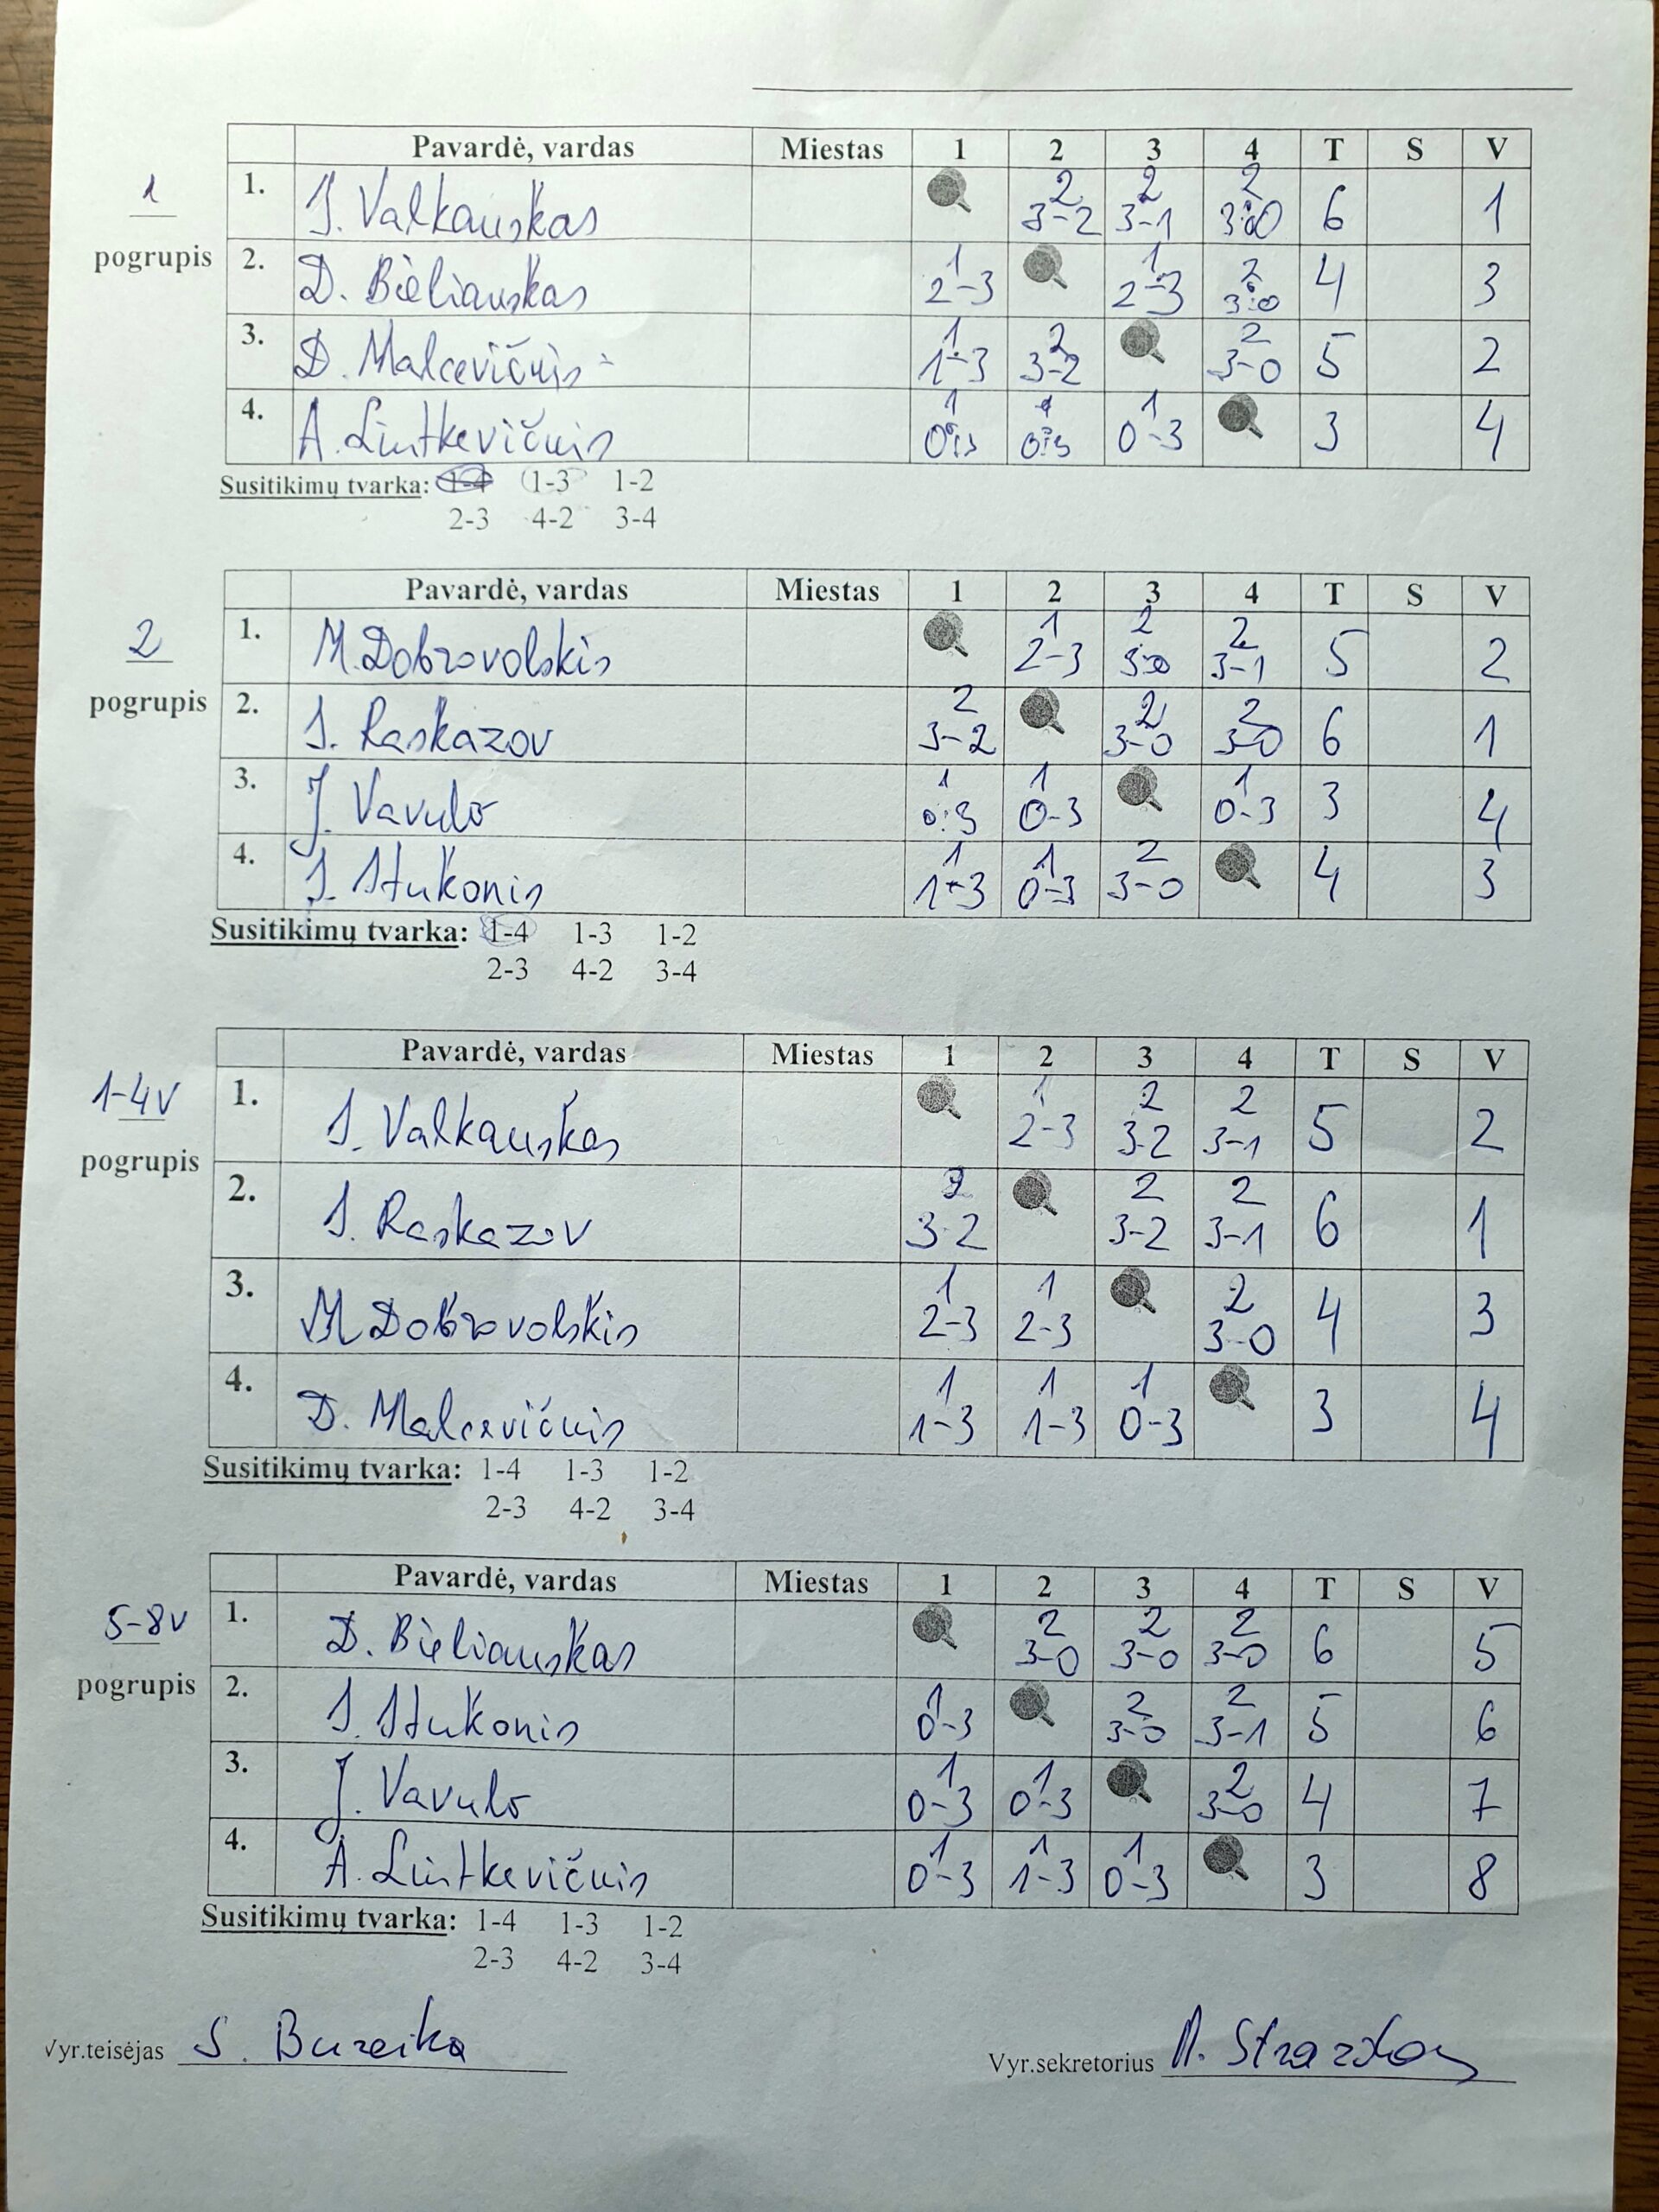 Pavardė, vardas Miestas 1 2 3 4 T S V
1 pogrupis
1. J. Valkauskas 2 3-2 2 3-1 2 3:0 6 1
2. D. Bieliauskas 1 2-3 1 2-3 2 3:0 4 3
3. D. Malcevičius 1 1-3 2 3-2 2 3-0 5 2
4. A. Liutkevičius 1 0:3 1 0:3 1 0-3 3 4
Susitikimų tvarka: 1-4 1-3 1-2
2-3 4-2 3-4
Pavardė, vardas Miestas 1 2 3 4 T S V
2 pogrupis
1. M. Dobrovolskis 1 2-3 2 3:0 2 3-1 5 2
2. J. Raskazov 2 3-2 2 3-0 2 3-0 6 1
3. J. Vavulo 1 0:3 1 0-3 1 0-3 3 4
4. J. Stukonis 1 1-3 1 0-3 2 3-0 4 3
Susitikimų tvarka: 1-4 1-3 1-2
2-3 4-2 3-4
Pavardė, vardas Miestas 1 2 3 4 T S V
1-4v pogrupis
1. J. Valkauskas 1 2-3 2 3-2 2 3-1 5 2
2. J. Raskazov 2 3-2 2 3-2 2 3-1 6 1
3. M Dobrovolskis 1 2-3 1 2-3 2 3-0 4 3
4. D. Malcevičius 1 1-3 1 1-3 1 0-3 3 4
Susitikimų tvarka: 1-4 1-3 1-2
2-3 4-2 3-4
Pavardė, vardas Miestas 1 2 3 4 T S V
5-8v pogrupis
1. D. Bieliauskas 2 3-0 2 3-0 2 3-0 6 5
2. J. Stukonis 1 0-3 2 3-0 2 3-1 5 6
3. J. Vavulo 1 0-3 1 0-3 2 3-0 4 7
4. A. Liutkevičius 1 0-3 1 1-3 1 0-3 3 8
Susitikimų tvarka: 1-4 1-3 1-2
2-3 4-2 3-4
Vyr.teisėjas S. Bureika Vyr.sekretorius A.